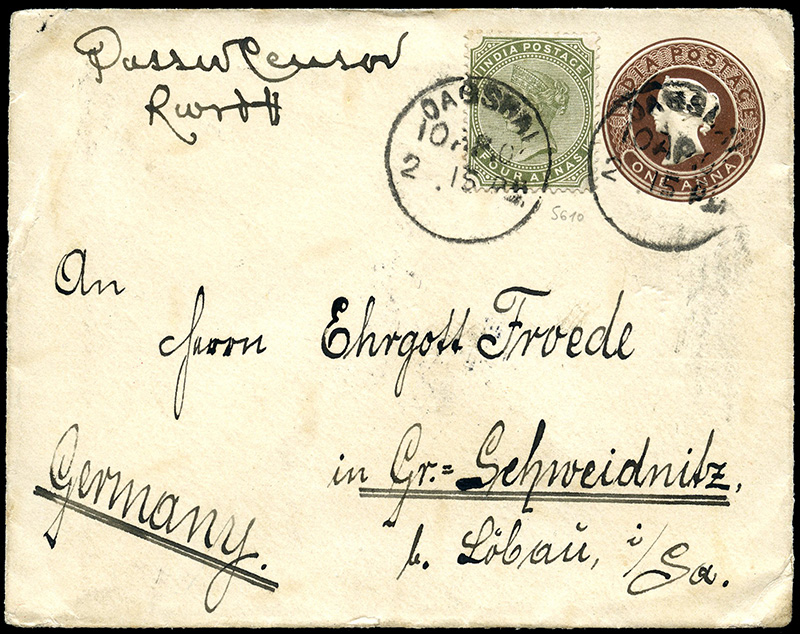 Passed Censor
INDIA POSTAGE
FOUR ANNAS
INDIA POSTAGE
ONE ANNA
DAGSHAI
10 AP
2 . 15
DAGSHAI
10 AP
2 . 15
5610
An
Herrn Ehrgott Froede
in Gr.= Schweidnitz,
b. Löbau, i/Sa.
Germany.